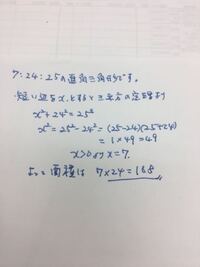 7:24:25の直角三角形です。
短い辺をx、とすると三平方の定理より
x²+24²=25²
x²=25²-24²=(25-24)(25+24)
=1×49=49
x>0よりx=7.
よって面積は 7×24=168